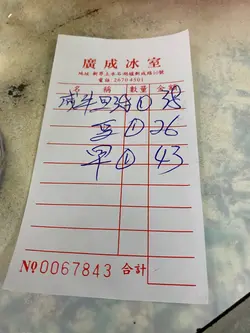 廣成冰室
地址 新界上水石湖墟新成路
電話 2670 4501
名稱 數量 金額
咸牛 ①
① 26
早 ① 43
№0067843 合計